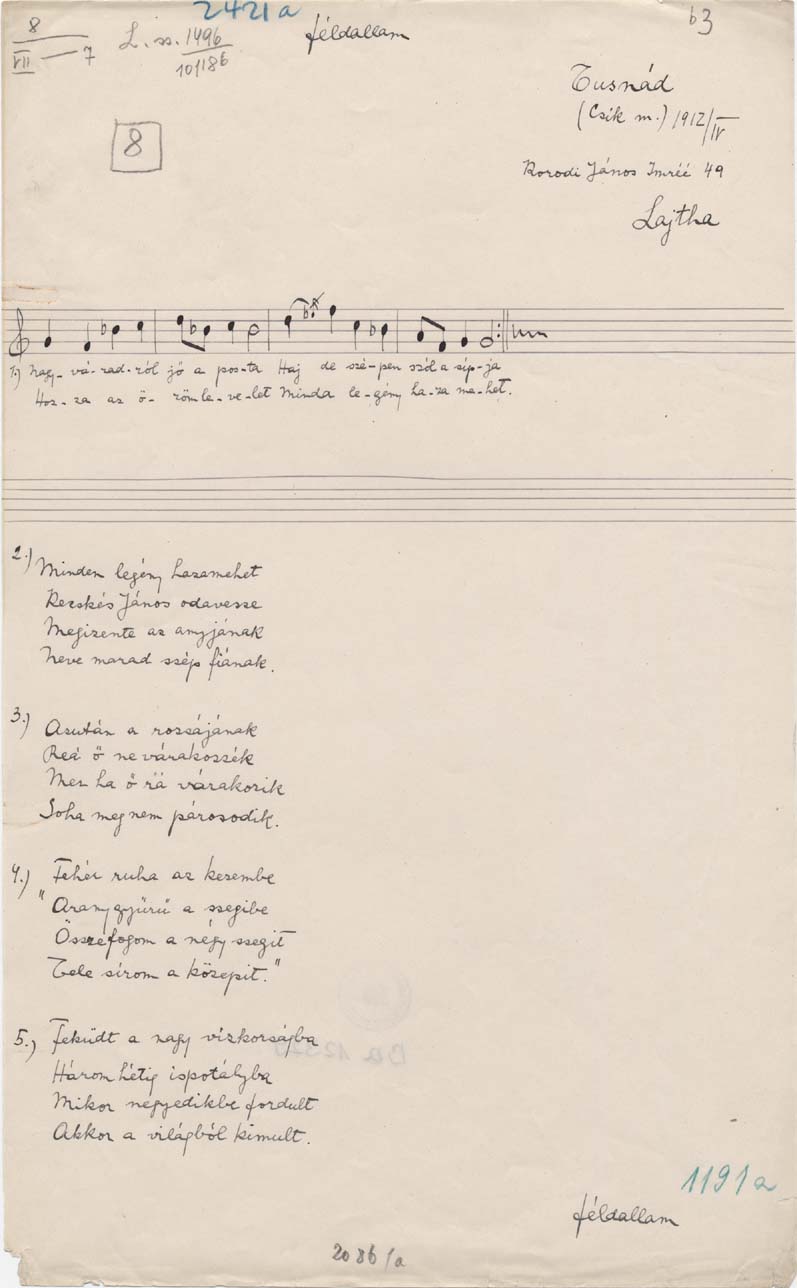 2421a
63
8
VII — 7
L. ss. 1496
101186
féldallam
8
Tusnád
(Csík m.) 1912/IV
Borodi János Imréé 49
Lajtha
1.) Nagy-vá-rad-ról jő a pos-ta Haj de szé-pen szól a síp-ja
Hoz-za az ö-röm le-ve-let Minda le-gény ha-za me-het.
2.) Minden legény hazamehet
Kecskés János odavesze
Megizente az anyjának
Neve marad szép fiának.
3.) Asután a rozsájának
Reá ő ne várakozzék
Mer ha ő rá várakozik
Soha meg nem párosodik.
4.) Fehér ruha az kezembe
"Arany gyürü a szegibe
Összefogom a négy szegit
Tele sírom a közepit."
5.) Feküdt a nagy vízkorságba
Három hétig ispotályba
Mikor negyedikbe fordult
Akkor a világból kimult.
1191a
féldallam
2086/a